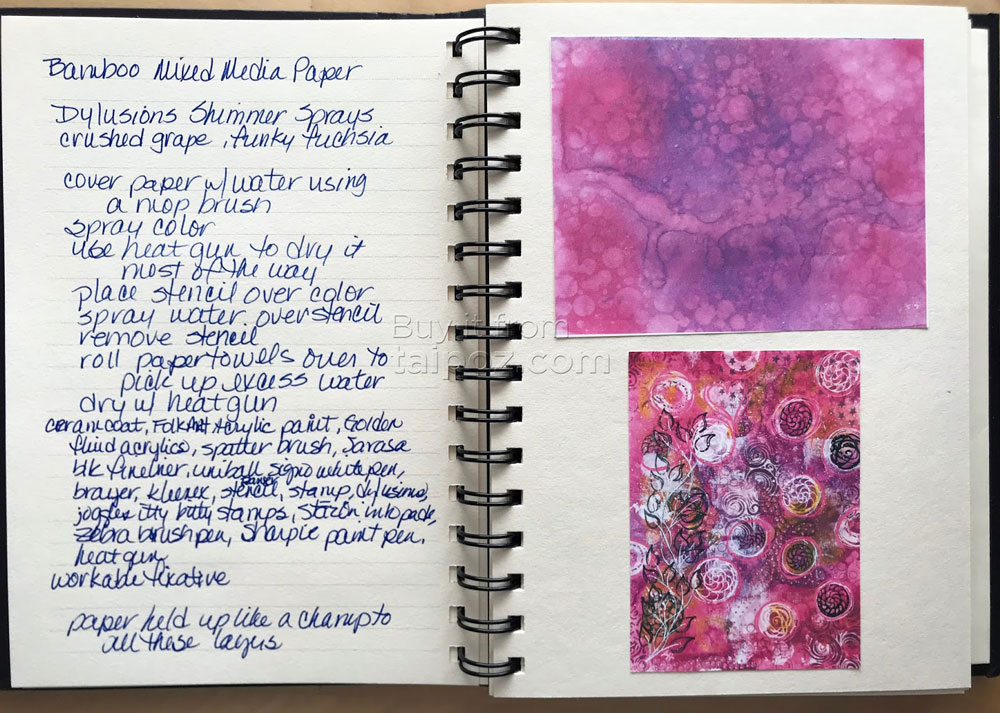 Bamboo Mixed Media Paper
Dylusions Shimmer Sprays
crushed grape, funky fuchsia
cover paper w/ water using
a mop brush
spray color
use heat gun to dry it
most of the way
place stencil over color
spray water over stencil
remove stencil
roll papertowels over to
pick up excess water
dry w/ heat gun
ceramcoat, FolkArt Acrylic paint, Golden
fluid acrylics, spatter brush, Sarasa
blk fineliner, uniball signo white pen,
brayer, kleenex, stencil, stamp, dylusions,
itty bitty stamps, Stazon ink pads,
zebra brush pen, Sharpie paint pen,
heat gun
workable fixative
paper held up like a champ to
all these layers
Buy it from
taipoz.com